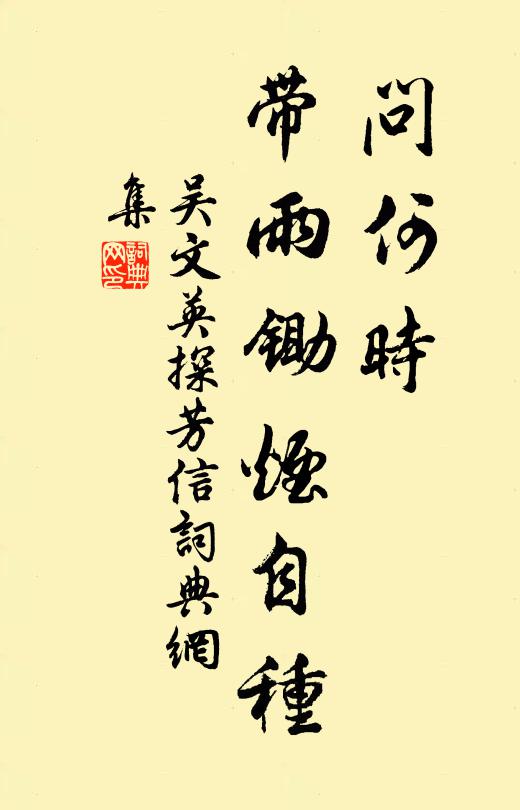 問何時
帶雨鋤煙自種
吴文英探芳信詞典網
集
詞典
网印